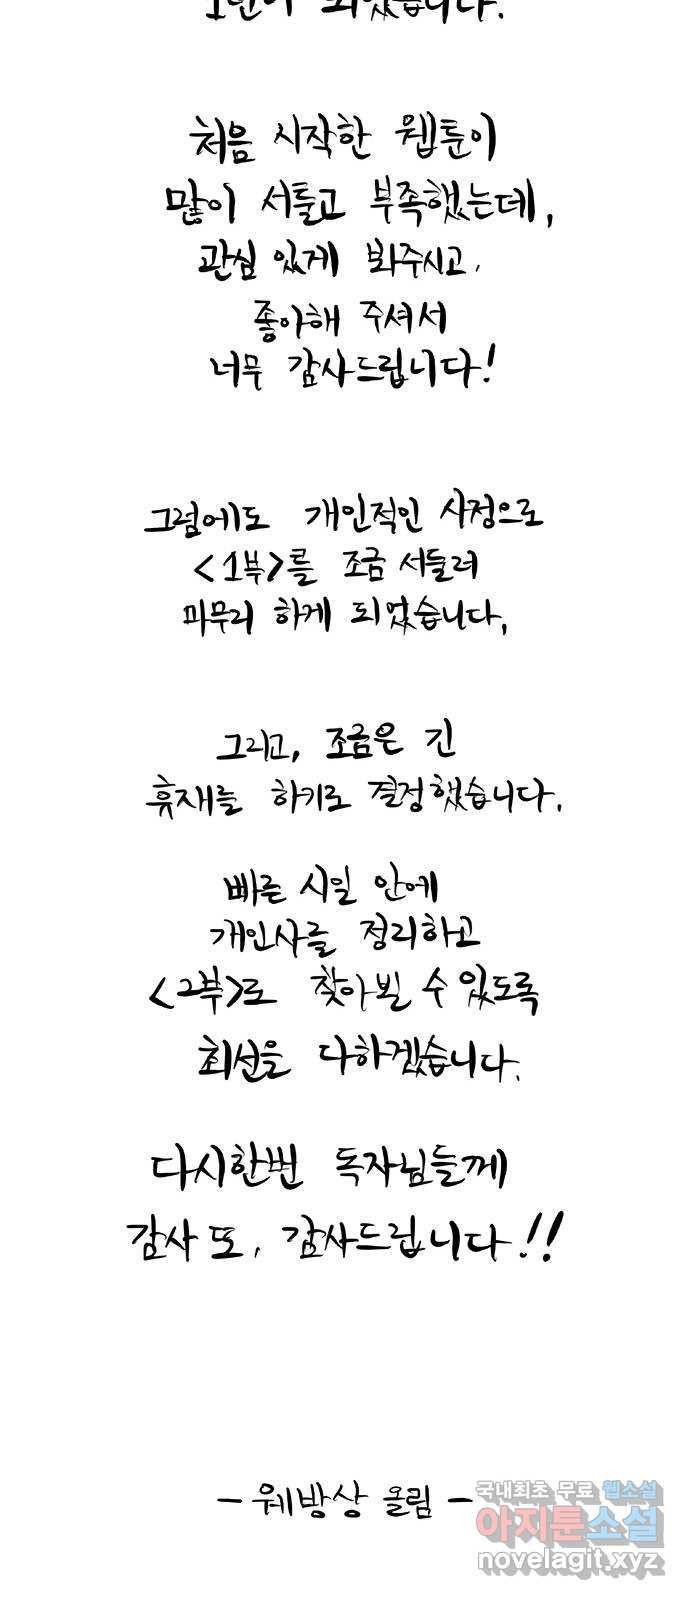 되었습니다.
처음 시작한 웹툰이
많이 서툴고 부족했는데,
관심 있게 봐주시고,
좋아해 주셔서
너무 감사드립니다!
그럼에도 개인적인 사정으로
<1부>를 조금 서둘러
마무리 하게 되었습니다,
그리고, 조금은 긴
휴재를 하기로 결정했습니다.
빠른 시일 안에
개인사를 정리하고
<2부>로 찾아뵐 수 있도록
최선을 다하겠습니다.
다시한번 독자님들께
감사 또, 감사드립니다!!
- 웨방상 올림 -
국내최초 무료 웹소설
아지툰소설
novelagit.xyz